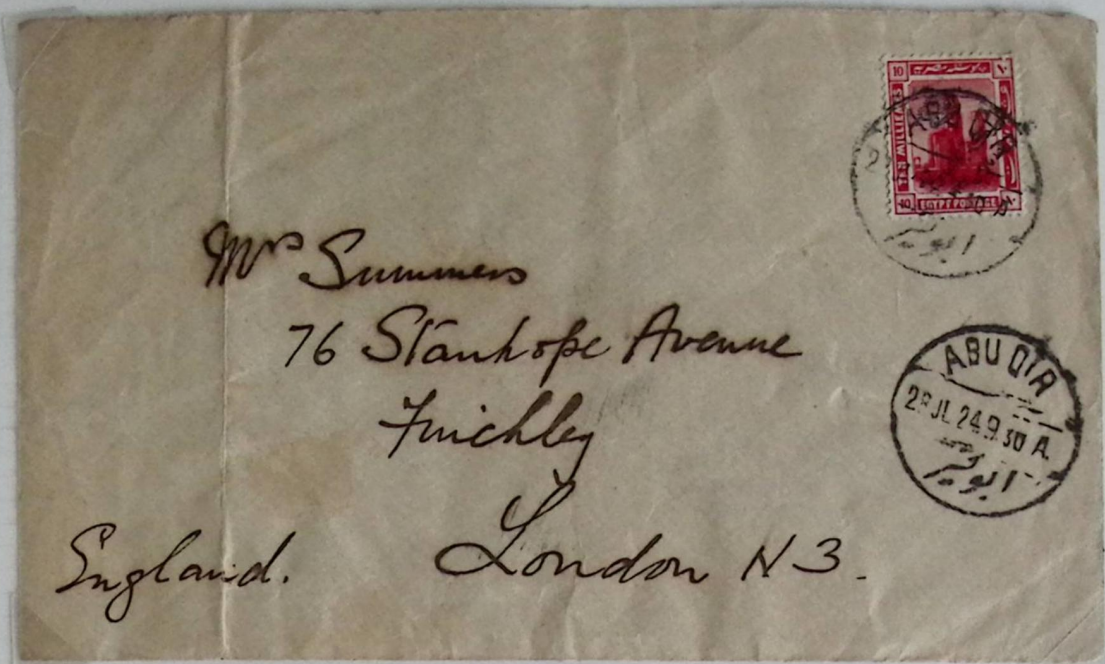 10 ١٠
TEN MILLIEMES
10 EGYPT POSTAGE ١٠
ابو قير
Mrs Summers
76 Stanhope Avenue
Finchley
London N3.
England.
ABU QIR
28 JL 24. 9 30 A.
ابو قير